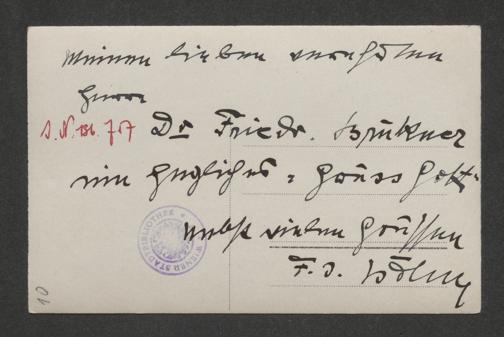 meinen lieben verehrten
Herrn
I.N. 136.757 Dr Friedr. Bruckner
ein herzliches = Grüss Gott =
nebst vielen Grüssen
F. J.
WIENER STADTBIBLIOTHEK
10